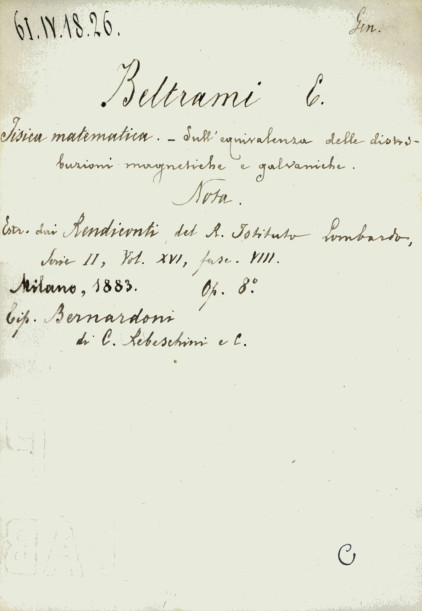 61.IV.18.26.
Gen.
Beltrami E.
Fisica matematica. - Sull'equivalenza delle distri-
buzioni magnetiche e galvaniche.
Nota.
Estr. dai Rendiconti del R. Istituto Lombardo,
Serie II, Vol. XVI, fasc. VIII.
Milano, 1883. Op. 8°
Tip. Bernardoni
di C. Rebeschini e C.
C